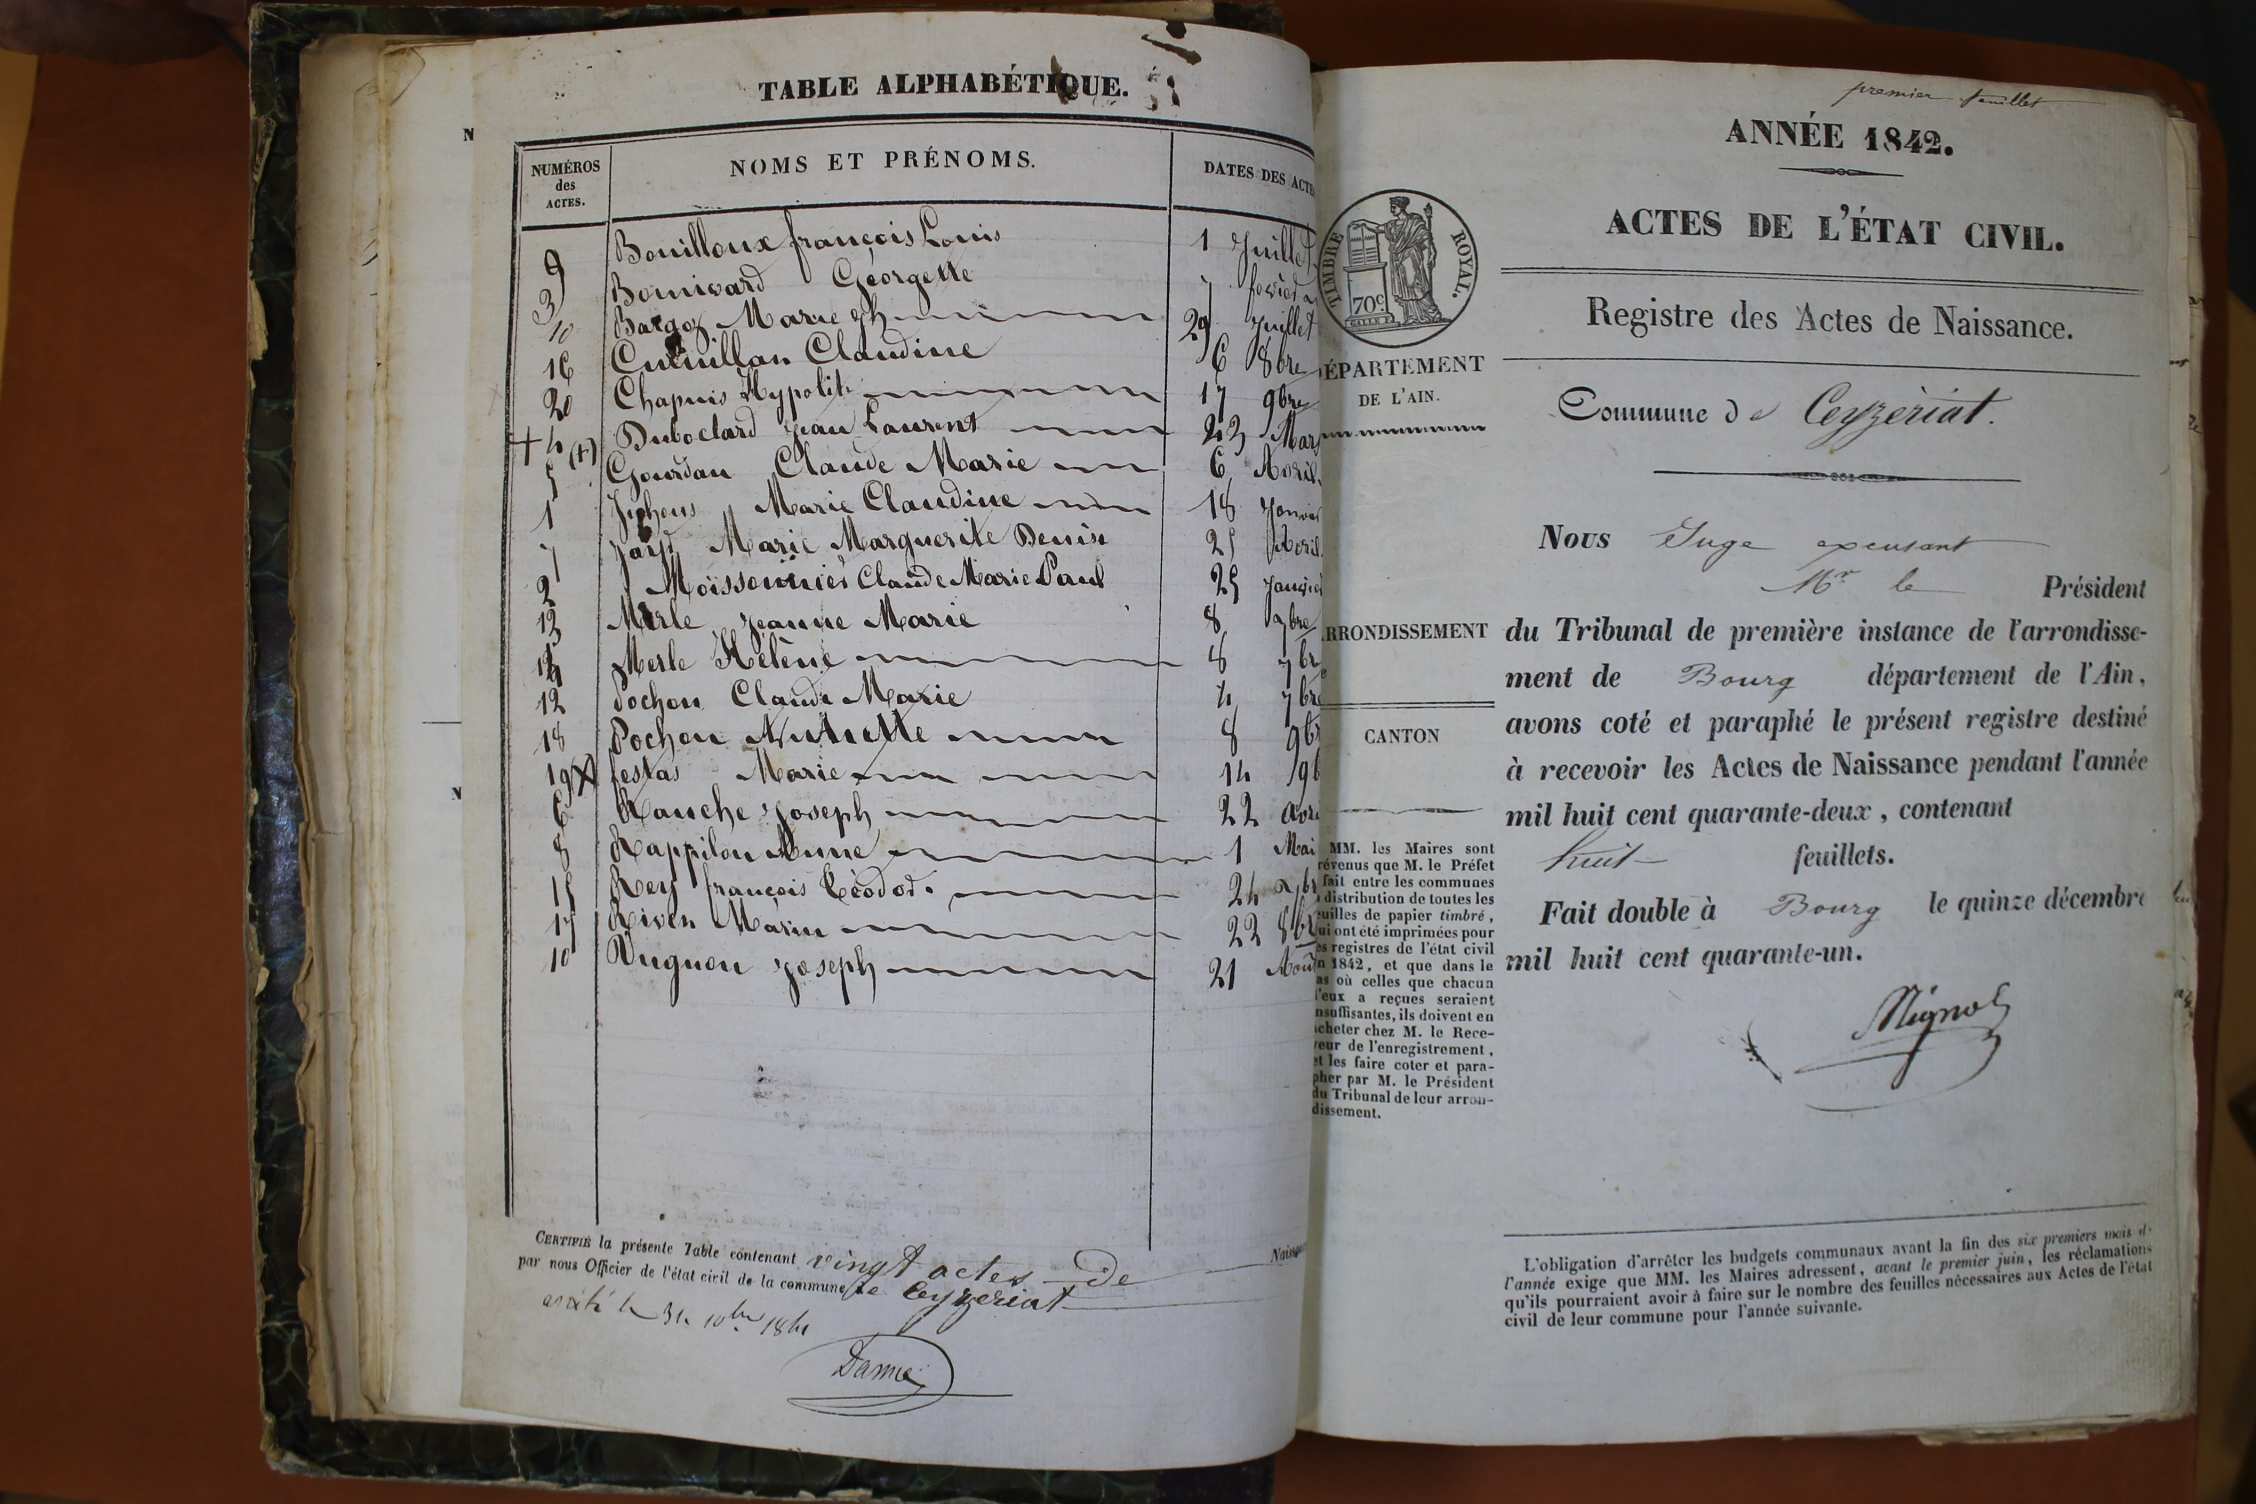 TABLE ALPHABÉTIQUE.
NUMÉROS des ACTES.
NOMS ET PRÉNOMS.
DATES DES ACTES
9 Bouilloux françois Louis 1 Juillet
3 Bonivard Géorgette 7
10 Bargoz Marie 29 Juillet
16 Claudine 6 8bre
20 Chapuis Hypolite 17 9bre
+ 4 (+) Duboclard Jean Laurent 23 Mars
5 Gourdan Claude Marie 6 Avril
1 Marie Claudine 18 Janvier
7 Marie Marguerite Denise 25 Avril
2 Moissonnier Claude Marie Paul 25 Janvier
13 Merle Jeanne Marie 8 7bre
14 Merle Hélène 8 7br
12 Pochon Claude Marie 4 7bre
18 Pochon 8 9br
19 X festas Marie 14 9b
6 Ranche Joseph 22 avri
8 Rappilon Anne 1 Mai
15 Rey françois Téodor 24 7br
17 Marin 22 8br
10 Vugnon Joseph 21 Aout
CERTIFIÉ la présente Table contenant vingt actes de Naiss
par nous Officier de l'état civil de la commune de Ceyzeriat
arrêté le 31 10bre 1841
premier feuillet
ANNÉE 1842.
ACTES DE L'ÉTAT CIVIL.
TIMBRE ROYAL.
70c.
Registre des Actes de Naissance.
ÉPARTEMENT
DE L'AIN.
Commune de Ceyzériat.
Nous Juge
Mr le Président
RRONDISSEMENT
du Tribunal de première instance de l'arrondisse-
ment de Bourg département de l'Ain,
avons coté et paraphé le présent registre destiné
CANTON
à recevoir les Actes de Naissance pendant l'année
mil huit cent quarante-deux, contenant
huit feuillets.
Fait double à Bourg le quinze décembre
mil huit cent quarante-un.
MM. les Maires sont
révenus que M. le Préfet
fait entre les communes
distribution de toutes les
euilles de papier timbré,
ui ont été imprimées pour
es registres de l'état civil
n 1842, et que dans le
as où celles que chacun
'eux a reçues seraient
nsuffisantes, ils doivent en
cheter chez M. le Rece-
veur de l'enregistrement,
et les faire coter et para-
pher par M. le Président
du Tribunal de leur arron-
dissement.
L'obligation d'arrêter les budgets communaux avant la fin des six premiers mois d
l'année exige que MM. les Maires adressent, avant le premier juin, les réclamations
qu'ils pourraient avoir à faire sur le nombre des feuilles nécessaires aux Actes de l'état
civil de leur commune pour l'année suivante.